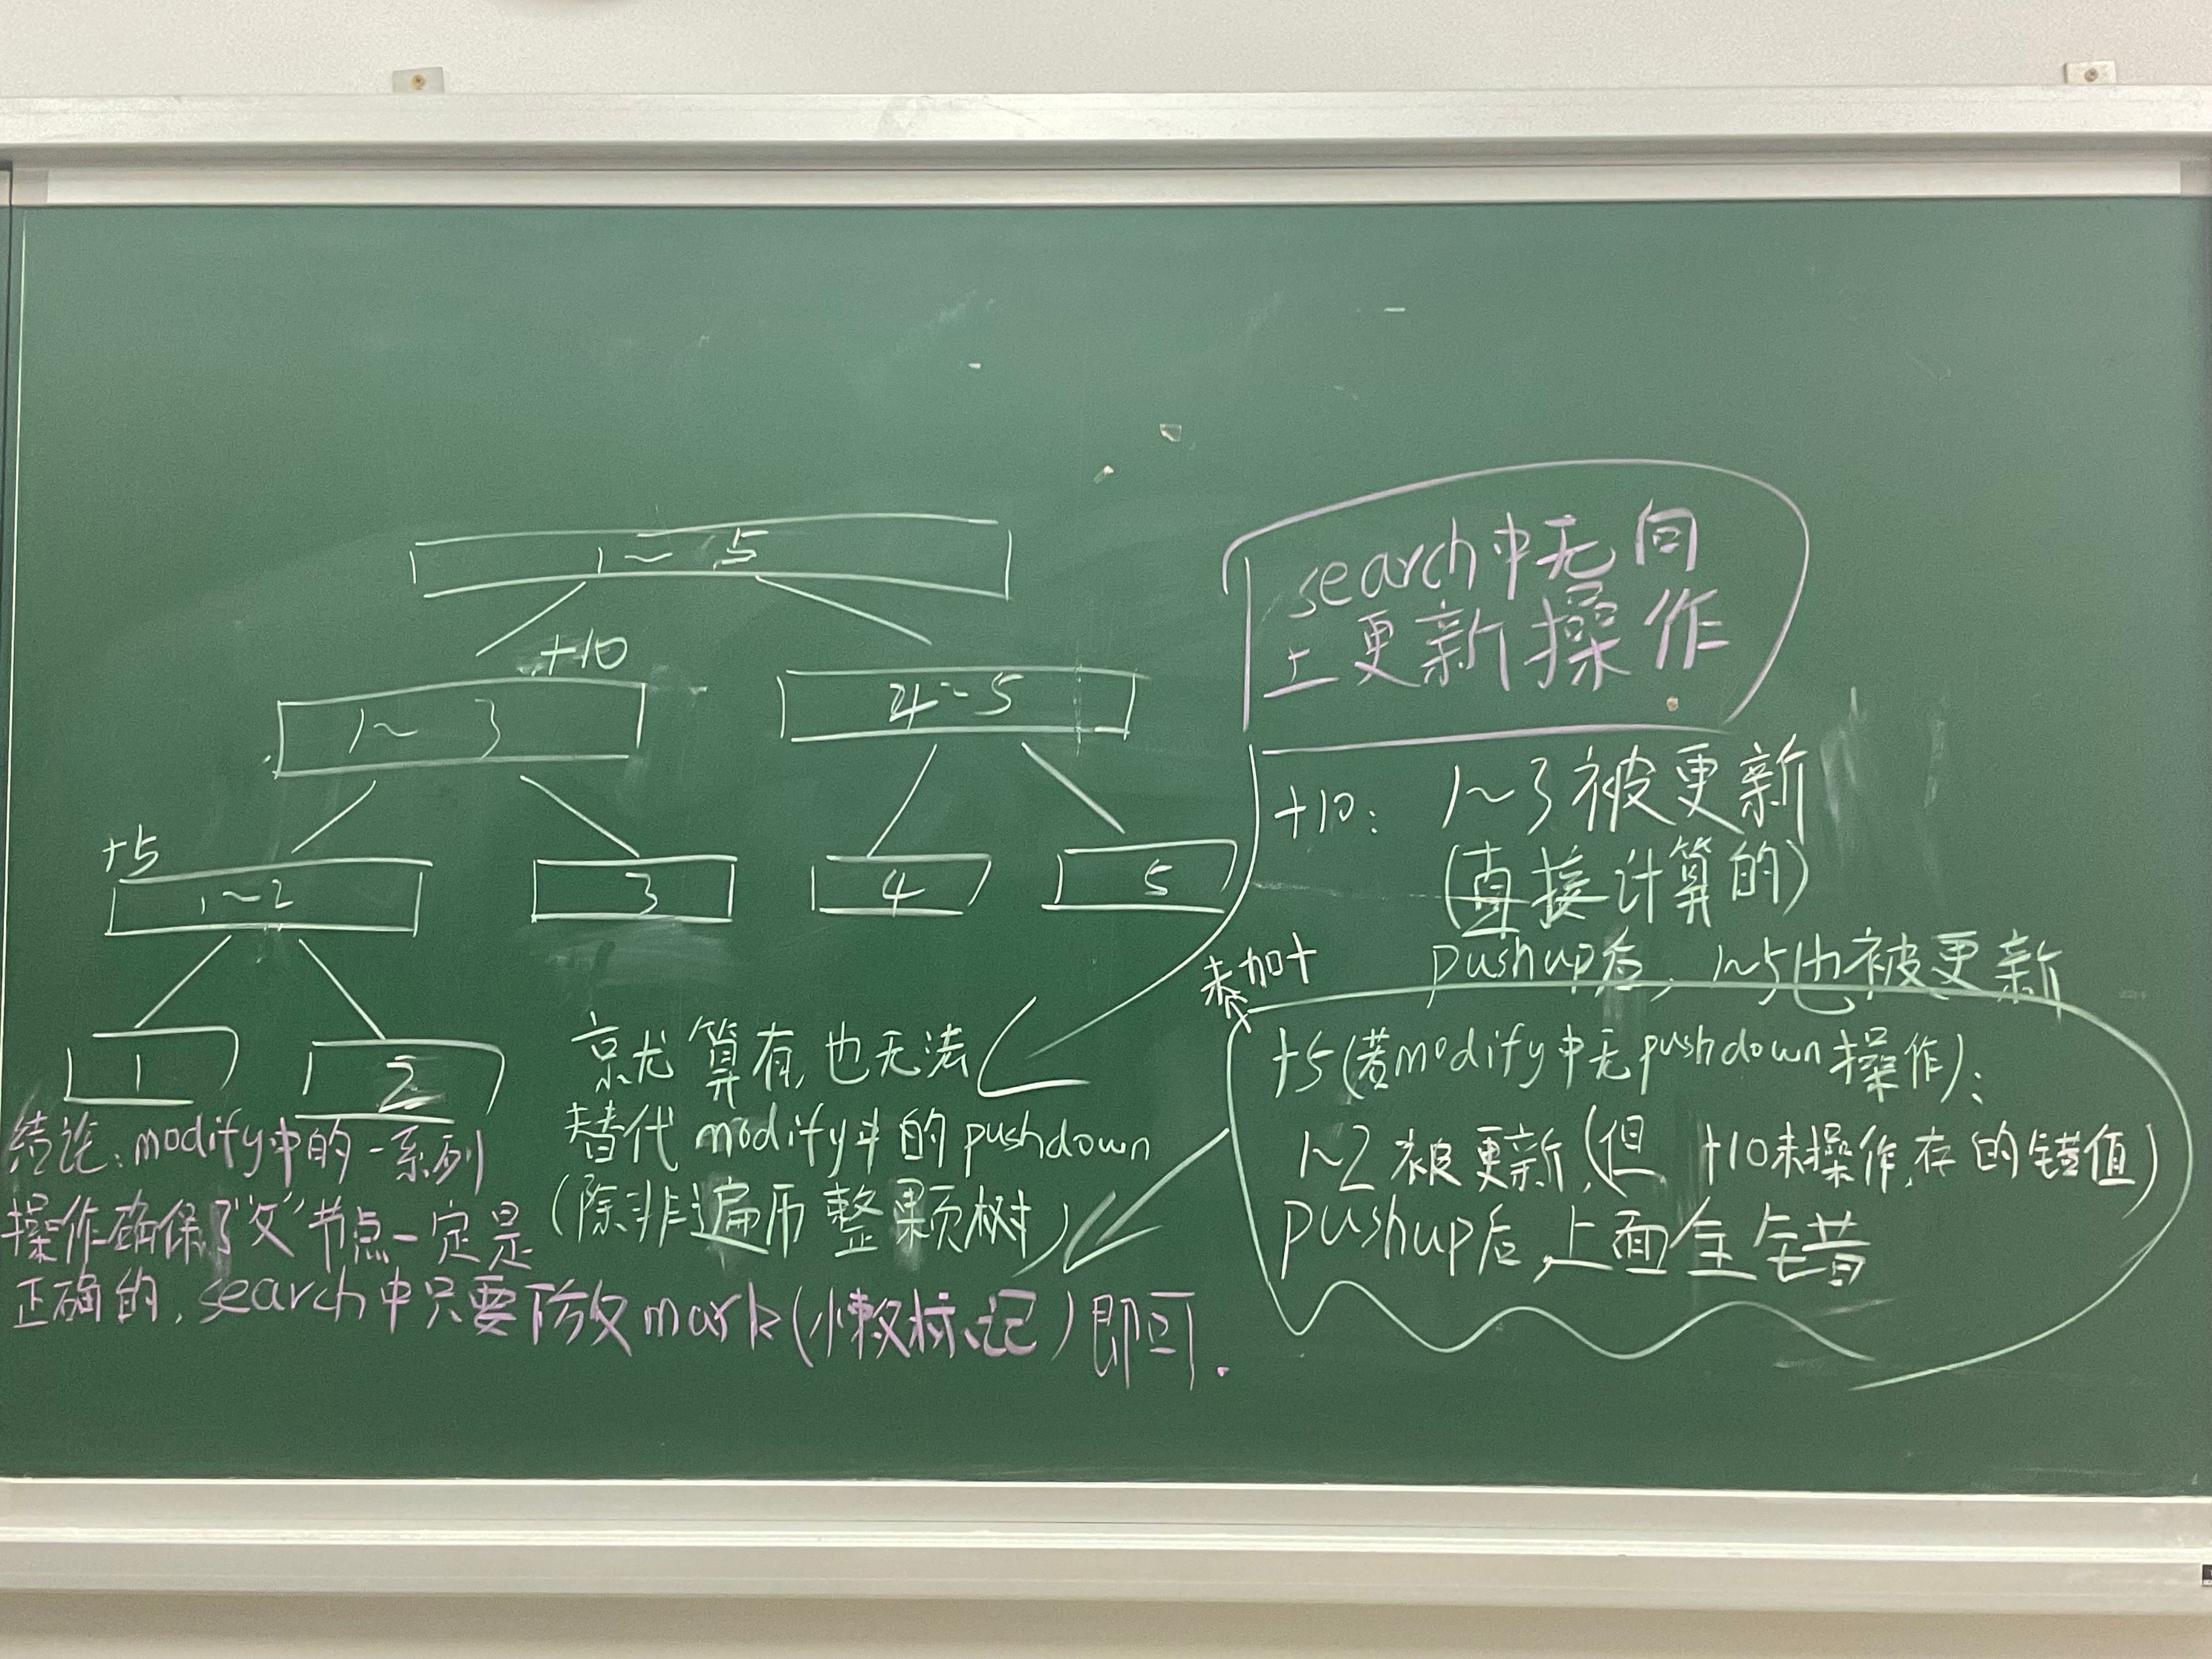 1~5
+10
1~3
4~5
+5
1~2
3
4
5
1
2
search中无向
上更新操作
+10: 1~3被更新
(直接计算的)
pushup后, 1~5也被更新
+5(若modify中无pushdown操作):
1~2被更新,(但 +10未操作,存的错值)
pushup后,上面全错
就算有,也无法
替代modify中的pushdown
(除非遍历整颗树)
结论: modify中的一系列
操作确保了"父"节点一定是
正确的, search中只要下放mark(懒标记)即可.